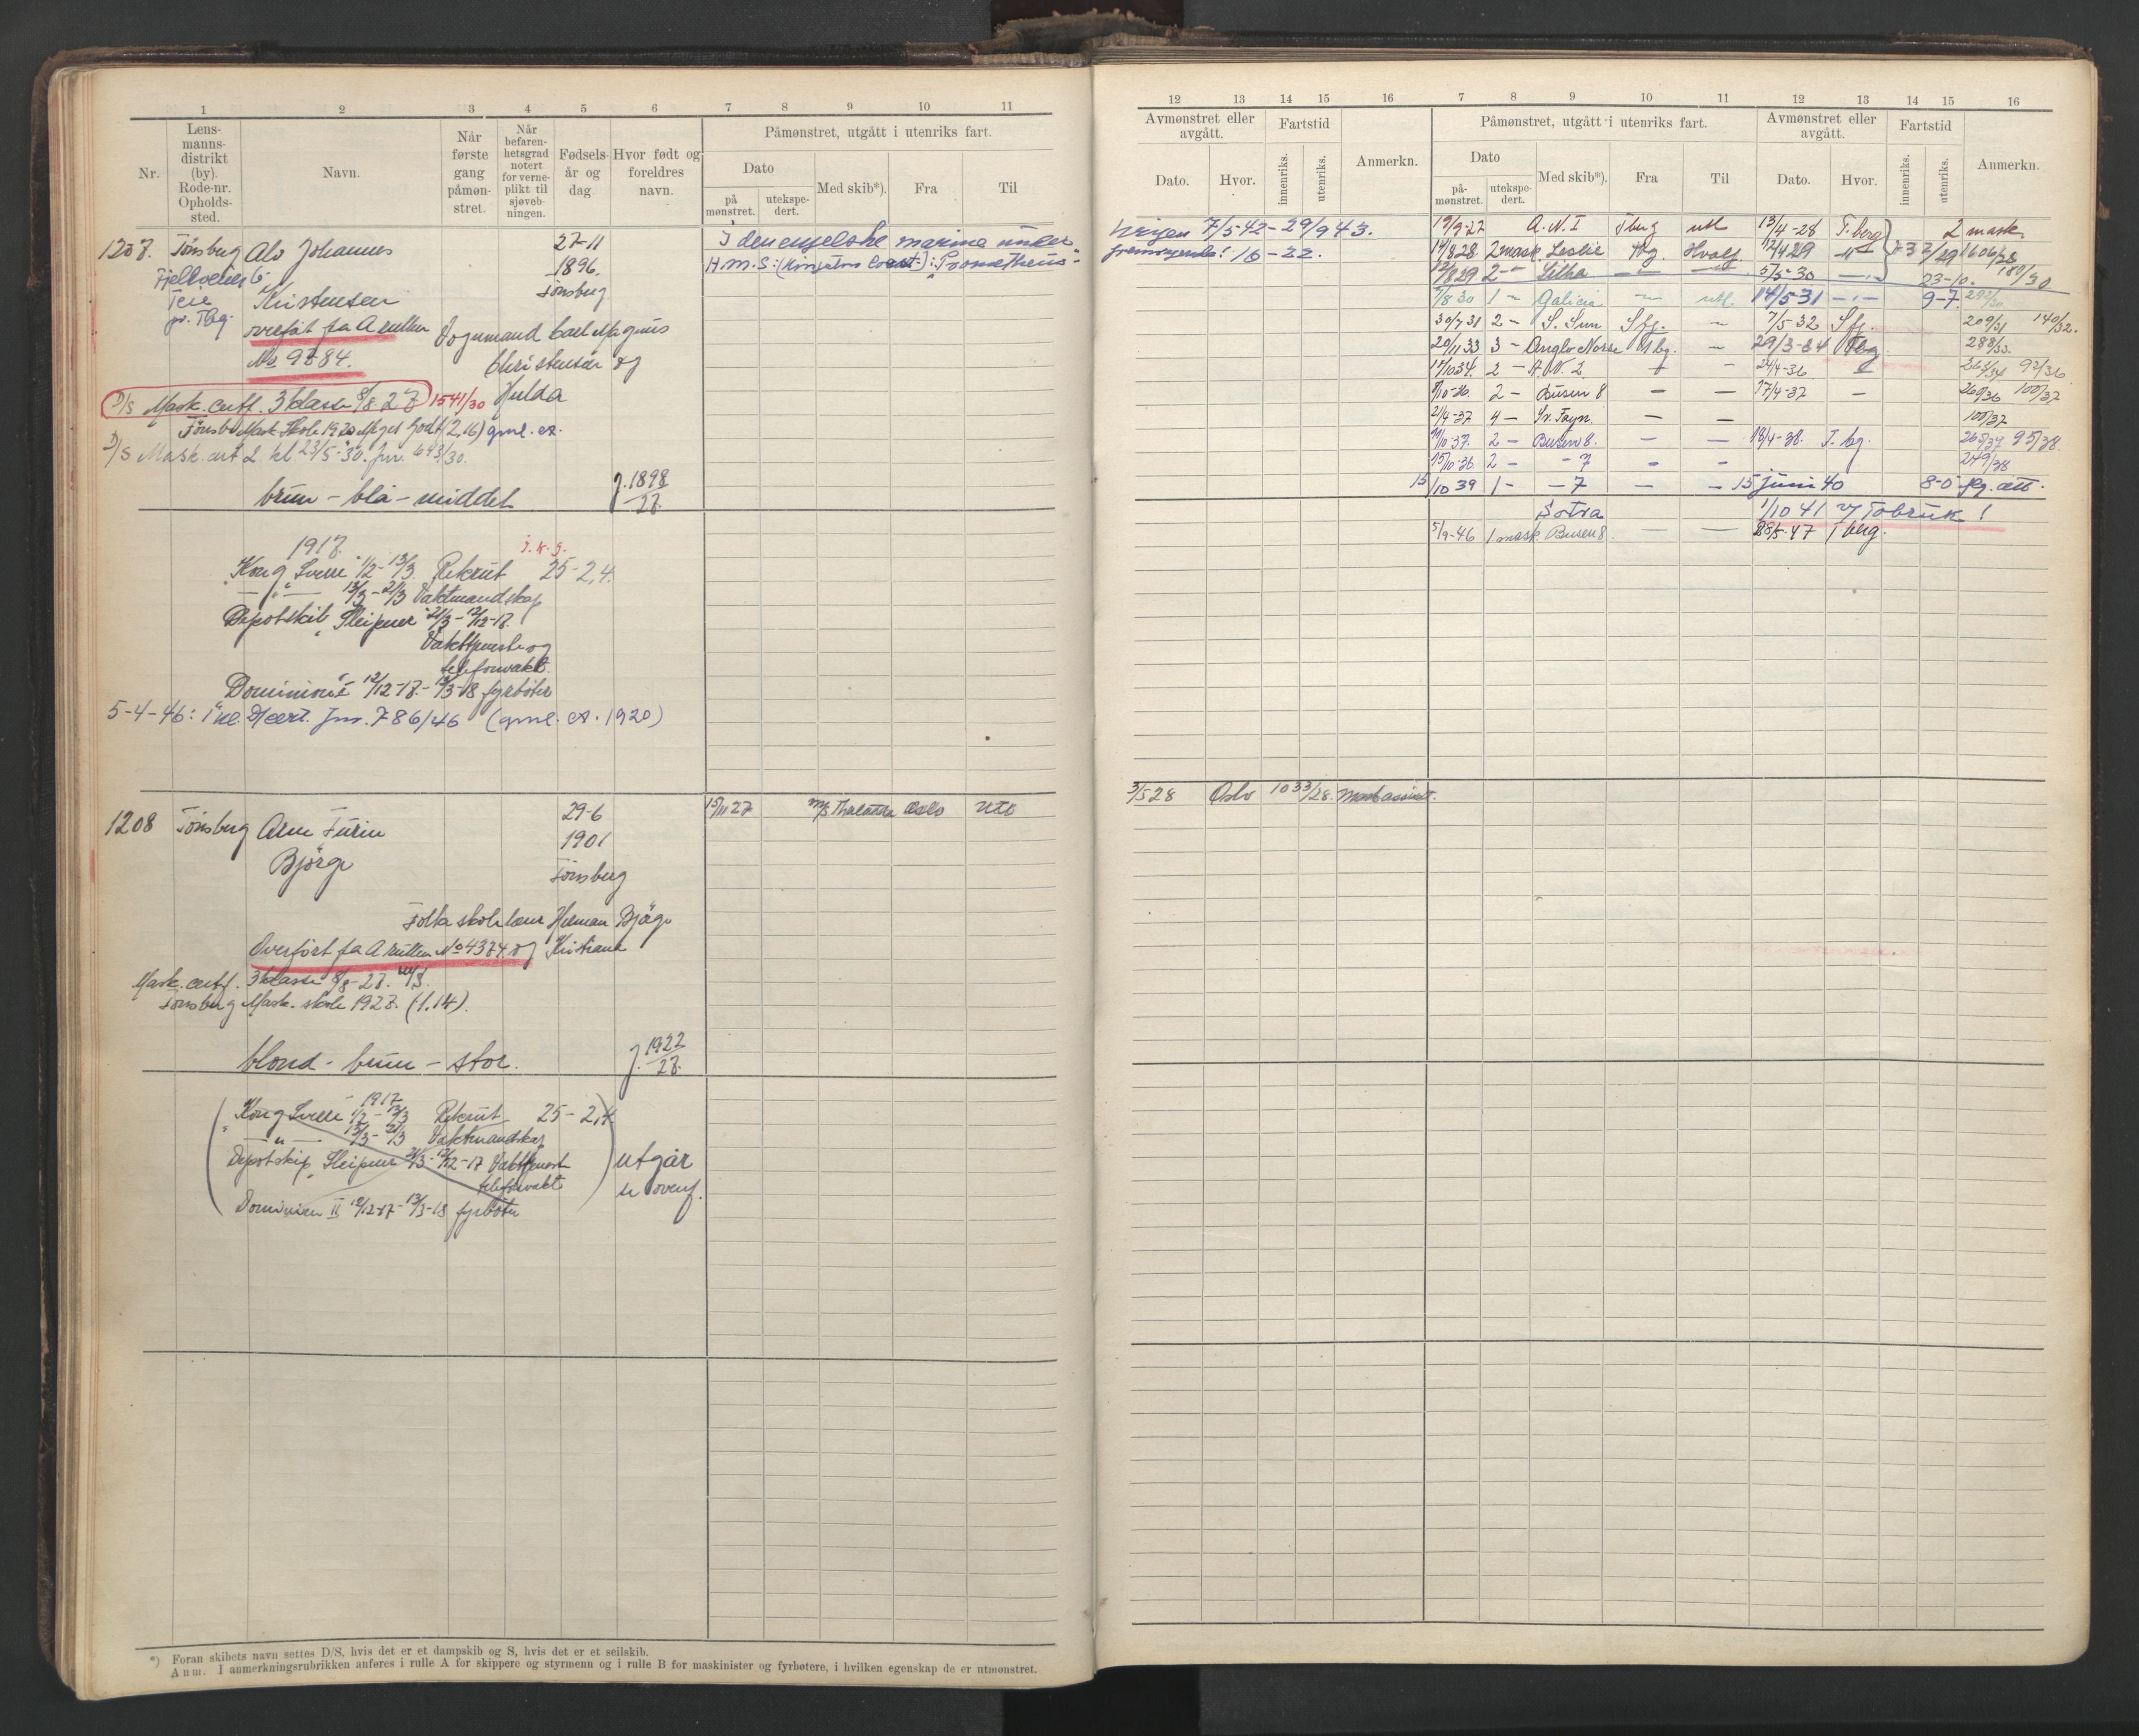 1 2 3 4 5 6 7 8 9 10 11
Nr.
Lens-
manns-
distrikt
(by).
Rode-nr.
Opholds-
sted.
Navn.
Når
første
gang
påmøn-
stret.
Når
befaren-
hetsgrad
notert
for verne-
plikt til
sjøveb-
ningen.
Fødsels-
år og
dag.
Hvor født og
foreldres
navn.
Påmønstret, utgått i utenriks fart.
Dato
på
mønstret.
utekspe-
dert.
Med skib*).
Fra
Til
1207. Tönsberg Alv Johannes 27-11
1896
Tönsberg
Teie
pr. Tbg.
Kristensen
overført fra A rullen
No 9784.
Vognmand Carl Magnus
Christensen og
Hulda
D/S Mask. certf. 3 klasse 8/8 27 1541/30
Tönsb. Mask. Skole 1920 Meget Godt (2,16) gml. et.
D/S Mask. cert 2 kl 23/5-30. jnr. 693/30.
brun – blå – middel
J. 1898/27
I den engelske marine under
H.M.S: (Kingston Coast:): "Prometheus"
1917 j.k.g.
"Kong Sverre" 1/2 - 13/3 Rekrut 25-2,4.
— " — 13/3 - 21/3 Vaktmandskap
Depotskib "Sleipner" 21/3 - 12/12-17.
Vakttjeneste og
telefonvakt.
"Dominion" 12/12-17 - 13/3-18 fyrbøter
5-4-46: 1 kl. D/cert. Jnr. 786/46 (gml. et. 1920)
1208 Tönsberg Arne Furin 29-6
Björge 1901
Tönsberg
Folkeskolelærer Herman Björge
Overført fra A rullen No 4374 og Kristiane
Mask. certf. 3 klasse 8/8-27.
Tönsberg Mask. skole 1927. (1.14).
blond – brun – stor.
J. 1922/27.
15/11 27 M/S Thalatta Oslo Utl
1917
"Kong Sverre" 1/2 - 13/3 Rekrut 25-2,4
— " — 13/3 - 21/3 Vaktmandskap
Depotskip "Sleipner" 21/3 - 12/12-17 Vakttjeneste
telefonvakt
Dominion II 12/12-17 - 13/3-18 fyrbøter
utgår
se ovenf.
*) Foran skibets navn settes D/S, hvis det er et dampskib og S, hvis det er et seilskib.
Anm. I anmerkningsrubrikken anføres i rulle A for skippere og styrmenn og i rulle B for maskinister og fyrbøtere, i hvilken egenskap de er utmønstret.
12 13 14 15 16 7 8 9 10 11 12 13 14 15 16
Avmønstret eller
avgått.
Dato.
Hvor.
Fartstid
innenriks.
utenriks.
Anmerkn.
Påmønstret, utgått i utenriks fart.
Dato
på-
mønstret.
utekspe-
dert.
Med skib*).
Fra
Til
Avmønstret eller
avgått.
Dato.
Hvor.
Fartstid
innenriks.
utenriks.
Anmerkn.
krigen 7/5-42 - 29/9 43.
16-22.
19/9-27 A.N.I Tberg utl 13/4-28 T.berg 2 mask.
14/8 28. 2 mask. Leslie Tbg. Hvalf. 12/4 29 37/29 1606/28
12/8 29 2 — — — 5/5-30 — 23-10. 180/30
7/8 30 1 — Galicia — utl. 14/5 31 — 9-7.
30/7 31 2 — S. Sun Sfj. — 7/5-32 Sfj. 209/31 140/32.
20/11 33 3 — Anglo Norse Tbg. — 29/3-34 Tbg 288/33.
2 — A.N. 2 — 24/4-36 92/36
2 — Busen 8 — — 17/4-37 — 260/36 100/37
21/4-37 4 — Sv. Foyn — — 100/37
2 — Busen 8. — — 18/4-38. T.bg. 265/37 95/38.
2 — — 7 — — 249/38
15/10 39 1 — — 7 — — 15 juni 40 8-0 att.
Sotra 1/10 41 v/ Tobruk!
5/9-46 1 mask. Busen 8 — — 28/5-47 Tberg.
3/5 28 Oslo 1033/28. Maskassist.